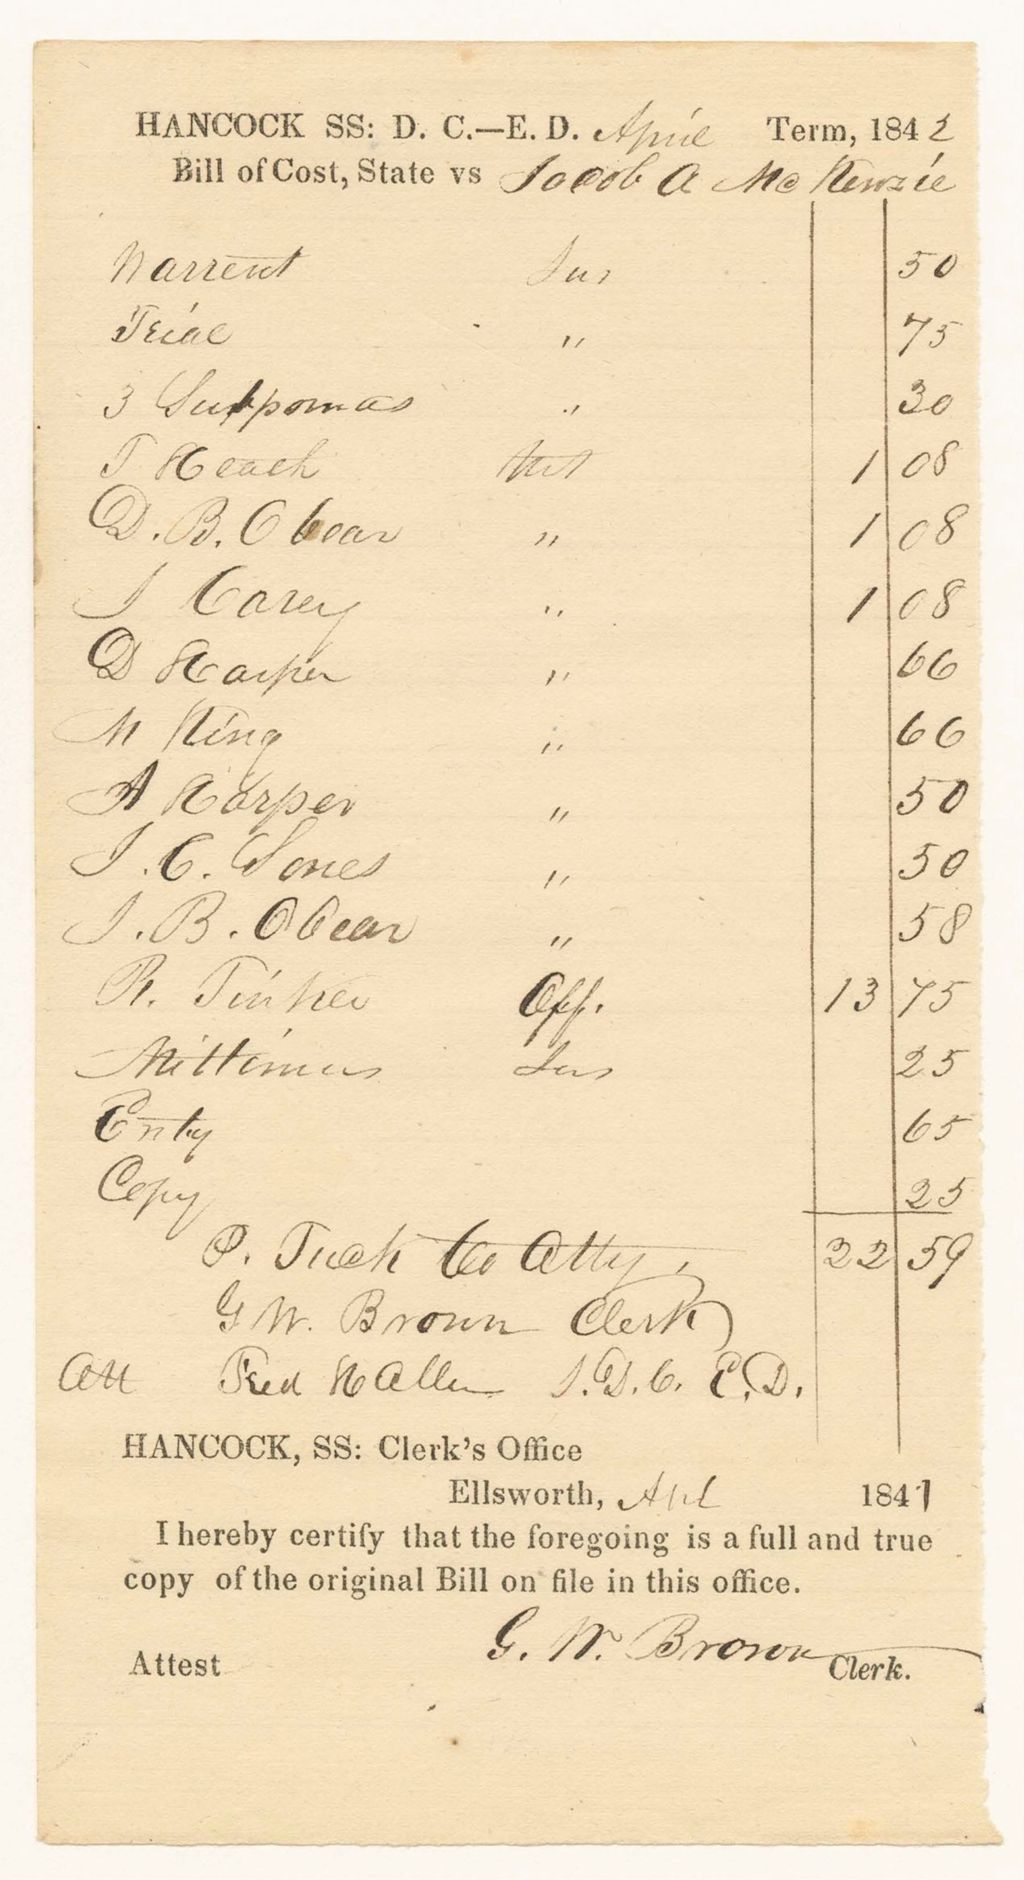 HANCOCK SS: D. C.—E. D. April Term, 1842
Bill of Cost, State vs Jacob A McKenzie
Warrent Jus 50
Trial " 75
3 Suppomas " 30
T Heach Wit 1 08
D. B. Obear " 1 08
J Carey " 1 08
D Harper " 66
M King " 66
A Harper " 50
J. C. Jones " 50
J. B. Obear " 58
R. Tinker Off. 13 75
Mittimus Jus 25
Enty 65
Copy 25
P. Tuck Co Atty. 22 59
G W. Brown Clerk
Att Fred H Allen J. D. C. E. D.
HANCOCK, SS: Clerk's Office
Ellsworth, Apl 1841
I hereby certify that the foregoing is a full and true
copy of the original Bill on file in this office.
G. W. Brown
Attest Clerk.